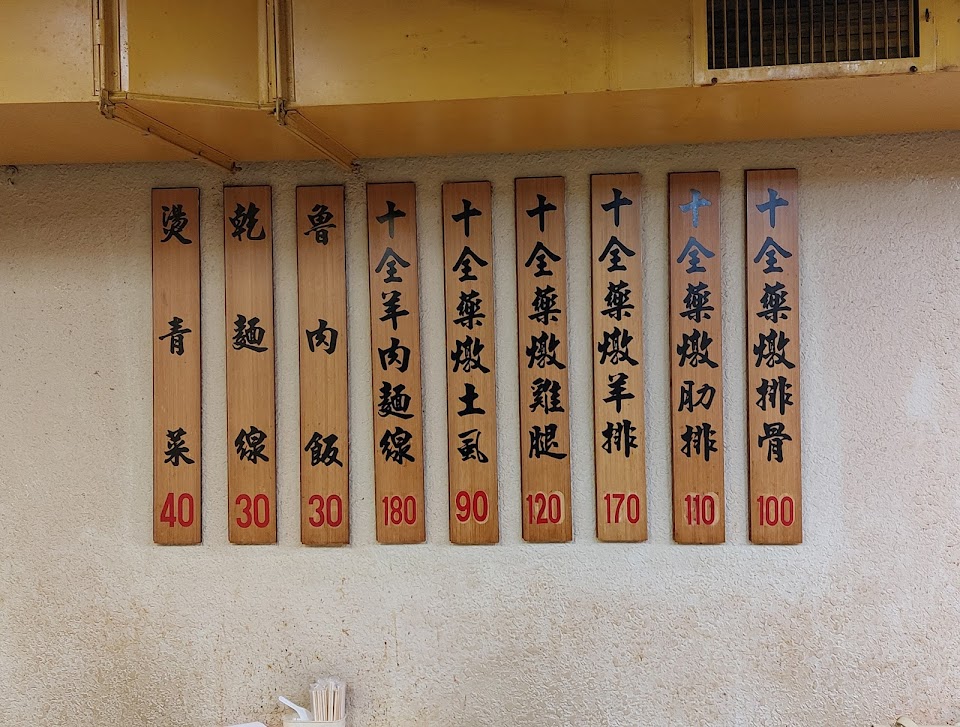 十全藥燉排骨 100
十全藥燉肋排 110
十全藥燉羊排 170
十全藥燉雞腿 120
十全藥燉土虱 90
十全羊肉麵線 180
魯肉飯 30
乾麵線 30
燙青菜 40